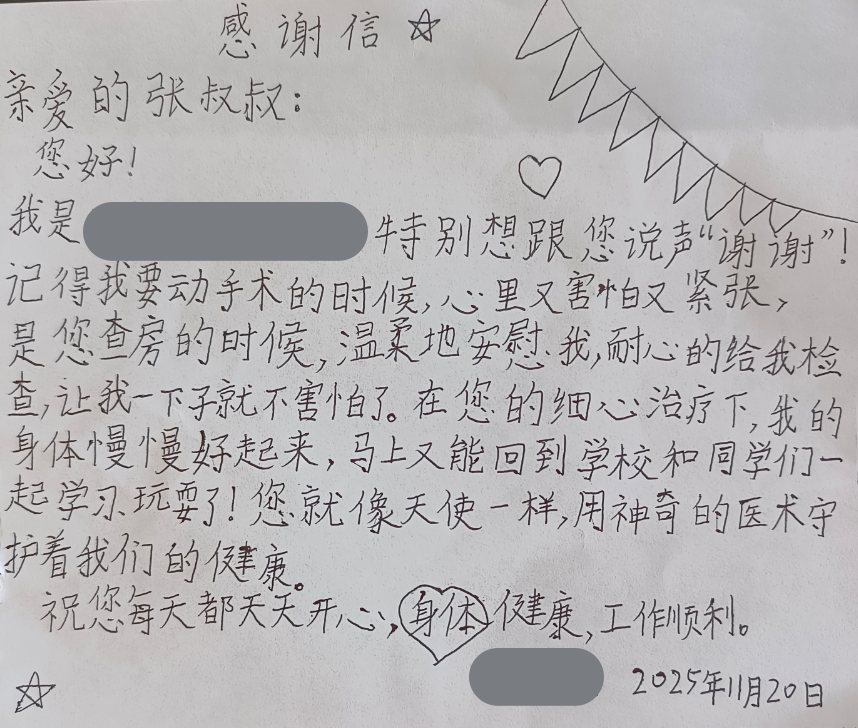 感谢信
亲爱的张叔叔：
您好！
我是 特别想跟您说声“谢谢”！
记得我要动手术的时候，心里又害怕又紧张，
是您查房的时候，温柔地安慰我，耐心的给我检
查，让我一下子就不害怕了。在您的细心治疗下，我的
身体慢慢好起来，马上又能回到学校和同学们一
起学习玩耍了！您就像天使一样，用神奇的医术守
护着我们的健康。
祝您每天都天天开心，身体健康，工作顺利。
2025年11月20日